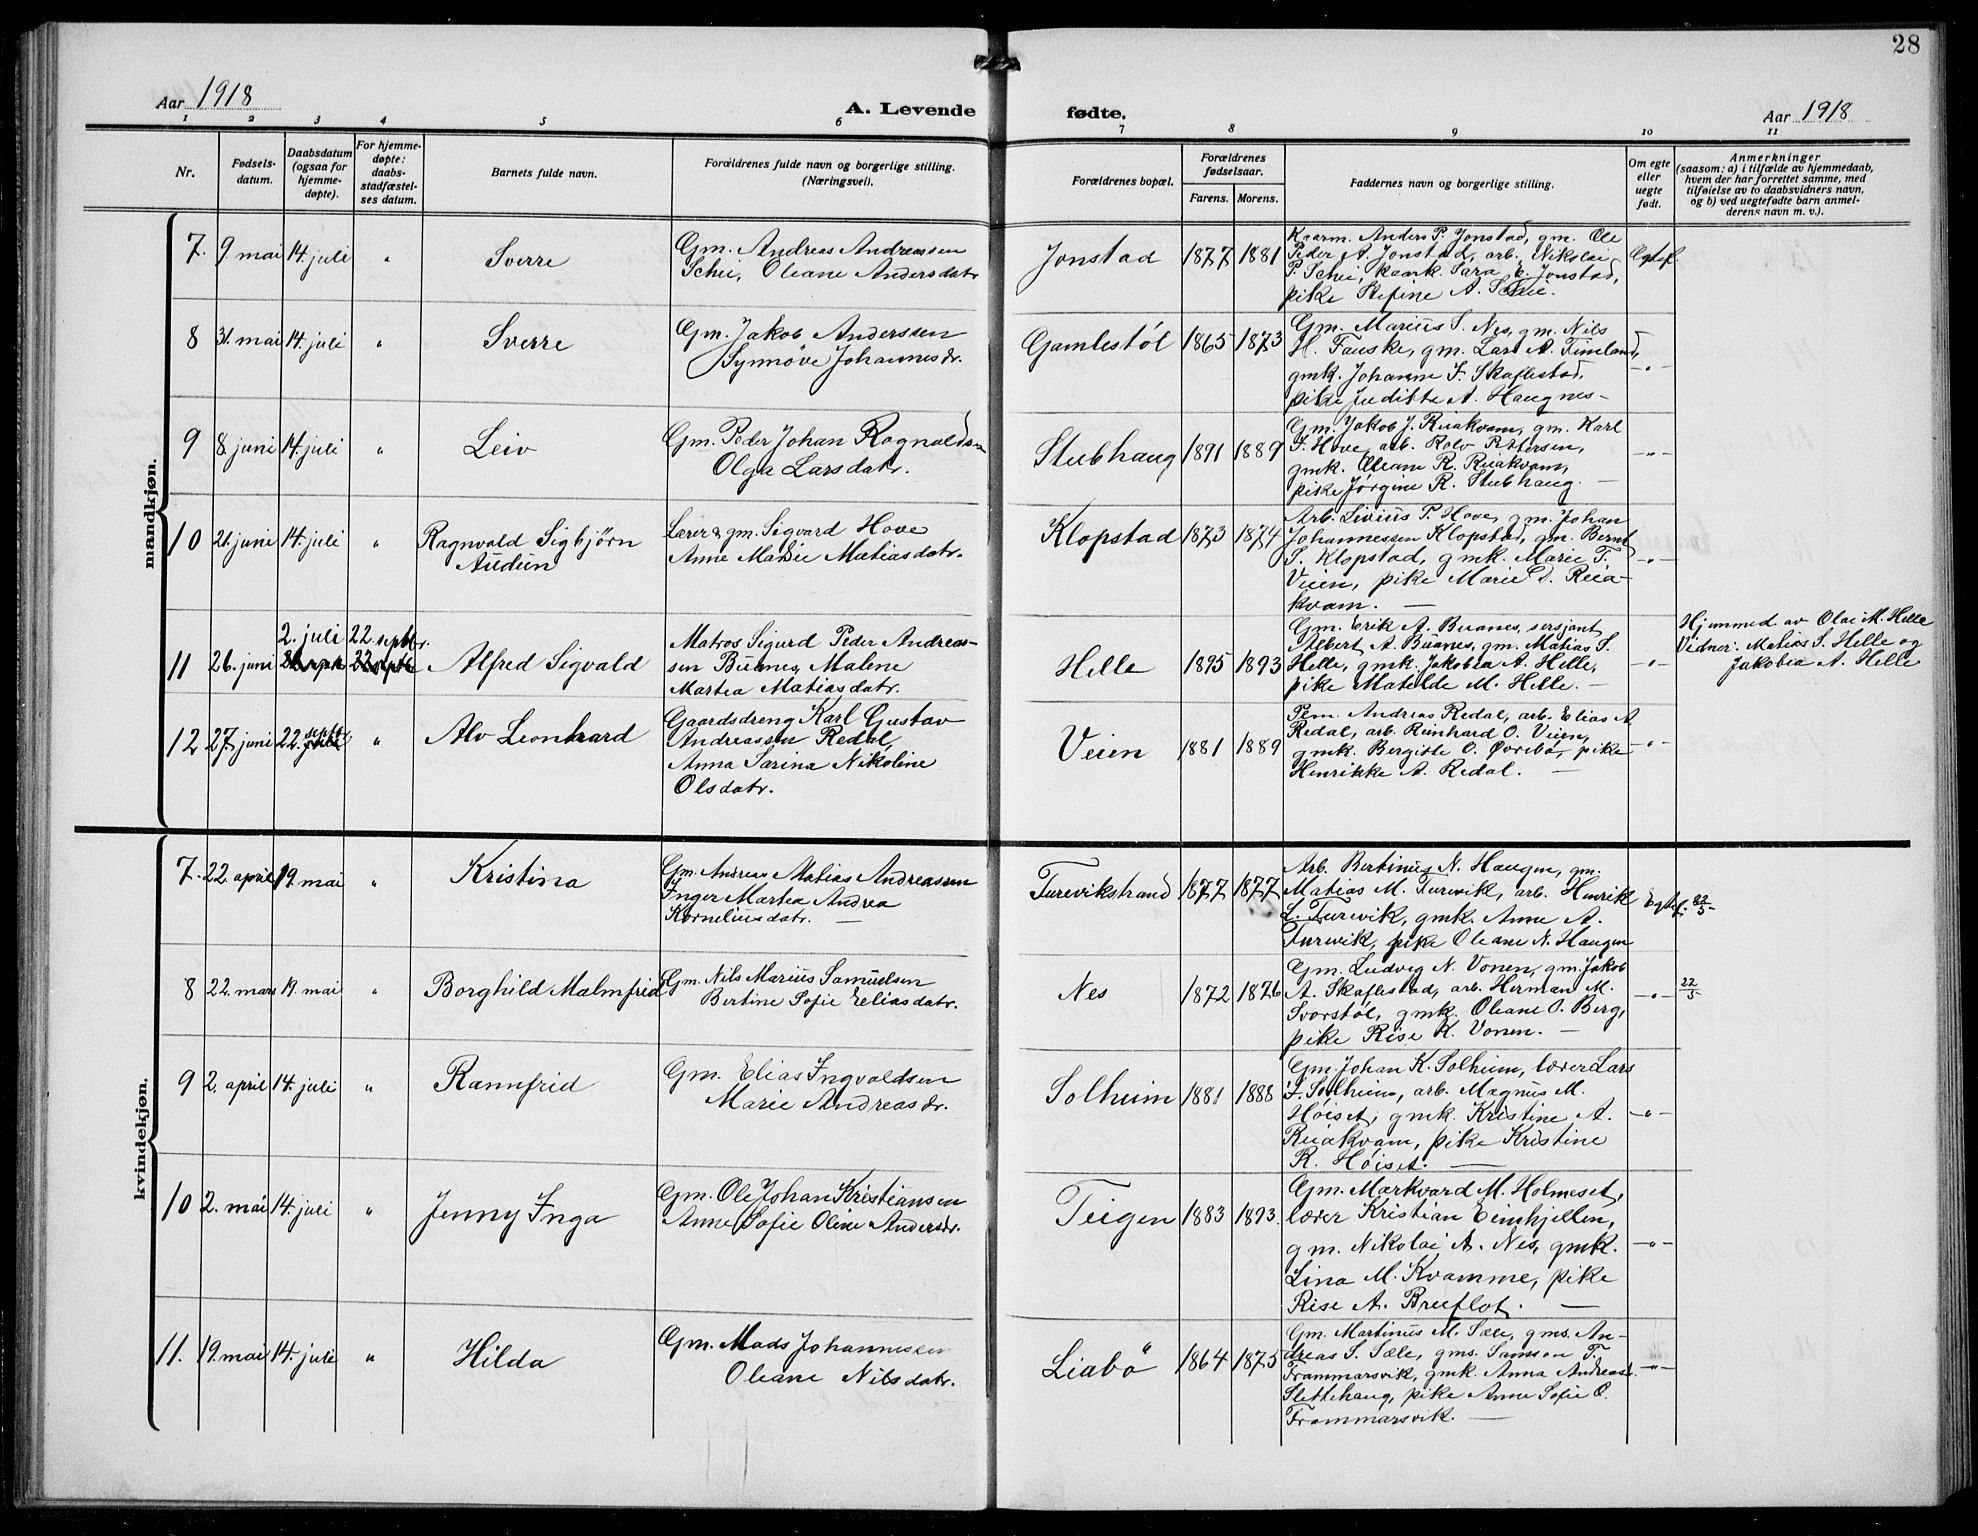 28
Aar 1918
A. Levende
fødte.
Aar 1918
1 2 3 4 5 6 7 8 9 10 11
Nr.
Fødsels-
datum.
Daabsdatum
(ogsaa for
hjemme-
døpte).
For hjemme-
døpte:
daabs-
stadfæstel-
ses datum.
Barnets fulde navn.
Forældrenes fulde navn og borgerlige stilling.
(Næringsvei).
Forældrenes bopæl.
Forældrenes
fødselsaar.
Farens. Morens.
Faddernes navn og borgerlige stilling.
Om egte
eller
uegte
født.
Anmerkninger
(saasom: a) i tilfælde av hjemmedaab,
hvem der har forrettet samme, med
tilføielse av to daabsvidners navn,
og b) ved uegtefødte barn anmel-
derens navn m. v.).
mandkjøn.
7. 9 mai 14. juli " Sverre
Gm. Andreas Andreassen
Schei, Oleane Andersdatr.
Jonstad 1877 1881
Kaarm. Anders P. Jonstad, gm. Ole
Peder A. Jonstad, arb. Nikolai
P. Schei, kaark. Sara E. Jonstad,
pike Stefine A. Schei.
Egtef.
8 31. mai 14. juli " Sverre
Gm. Jakob Anderssen
Synnøve Johannesdr.
Gamlestøl 1865 1873
Gm. Marius S. Nes, gm. Nils
H. Fauske, gm. Lars A. Timland,
gmk. Johanne J. Skaflestad,
pike Juditte A. Haugnes -
-"-
9 8. juni 14. juli " Leiv
Gm. Peder Johan Ragnvaldsen
Olga Larsdatr.
Stubhaug 1891 1889
Gm. Jakob J. Ruakvam, gm. Karl
J. Hove, arb. Rolv Pettersen,
gmk. Oleane R. Ruakvam,
pike Jørgine R. Stubhaug. -
-"-
10 21. juni 14. juli " Ragnvald Sigbjörn
Audun
Lærer & gm. Sigvard Hove
Anne Marie Matiasdatr.
Klopstad 1873 1874
Arb. Livius P. Hove, gm. Johan
Johannessen Klopstad, gm. Bernt
S. Klopstad, gmk. Marie T.
Veien, pike Marie D. Rua-
kvam. -
-"-
11 26. juni 2. juli 22. septbr. Alfred Sigvald
Matros Sigurd Peder Andreas-
sen Buanes, Malene
Martea Matiasdatr.
Helle 1895 1893
Gm. Erik A. Buanes, sersjant
Albert A. Buanes, gm. Matias S.
Helle, gmk. Jakobea A. Helle,
pike Matelde M. Helle. -
-"-
Hjemmed av Olai M. Helle
Vidner: Matias S. Helle og
Jakobea A. Helle
12 27. juni 22. sept " Alv Leonhard
Gaardsdreng Karl Gustav
Andreassen Redal,
Anna Sarina Nikoline
Olsdatr.
Veien 1881 1889
Pem. Andreas Redal, arb. Elias A.
Redal, arb. Reinhard O. Veien,
gmk. Bergitte O. Øvrebø, pike
Henrikke A. Redal. -
-"-
kvindekjøn.
7. 22. april 19. mai " Kristina
Gm. Andreas Matias Andreassen
Inger Martea Andrea
Korneliusdatr. -
Turevikstrand 1877 1877
Arb. Bertinus N. Haugen, gm.
Matias M. Turevik, arb. Henrik
L. Turevik, gmk. Anne A.
Turevik, pike Oleane N. Haugen
Egtef. 22/5
8 22. mars 19. mai " Borghild Malmfrid
Gm. Nils Marius Samuelsen
Bertine Sofie Eeliasdatr.
Nes 1872 1876
Gm. Ludvig N. Vonen, gm. Jakob
A. Skaflestad, arb. Herman M.
Svorstøl, gmk. Oleane O. Berg,
pike Rise K. Vonen. -
-"- 22/5
9 2. april 14. juli " Rannfrid
Gm. Elias Ingvaldsen
Marie Andreasdr.
Solheim 1881 1888
Gm. Johan K. Solheim, lærer Lars
J. Solheim, arb. Magnus M.
Høiset, gmk. Kristine A.
Ruakvam, pike Kristine
R. Høiset. -
-"-
10 2. mai 14. juli " Jenny Inga
Gm. Ole Johan Kristiansen
Anne Sofie Oline Andersdr.
Teigen 1883 1893.
Gm. Markvard M. Holmeset,
lærer Kristian Eimhjellen,
gm. Nikolai A. Nes, gmk.
Lina M. Kvamme, pike
Rise A. Breflot. -
-"-
11. 19. mai 14. juli " Hilda
Gm. Mads Johannessen
Oleane Nilsdatr.
Liabö 1864 1875
Gm. Martinus M. Sæle, gms. An-
dreas S. Sæle, gms. Samson T.
Frammarsvik, gmk. Anna Andreasd.
Slettehaug, pike Anne Sofie O.
Frammarsvik. -
-"-